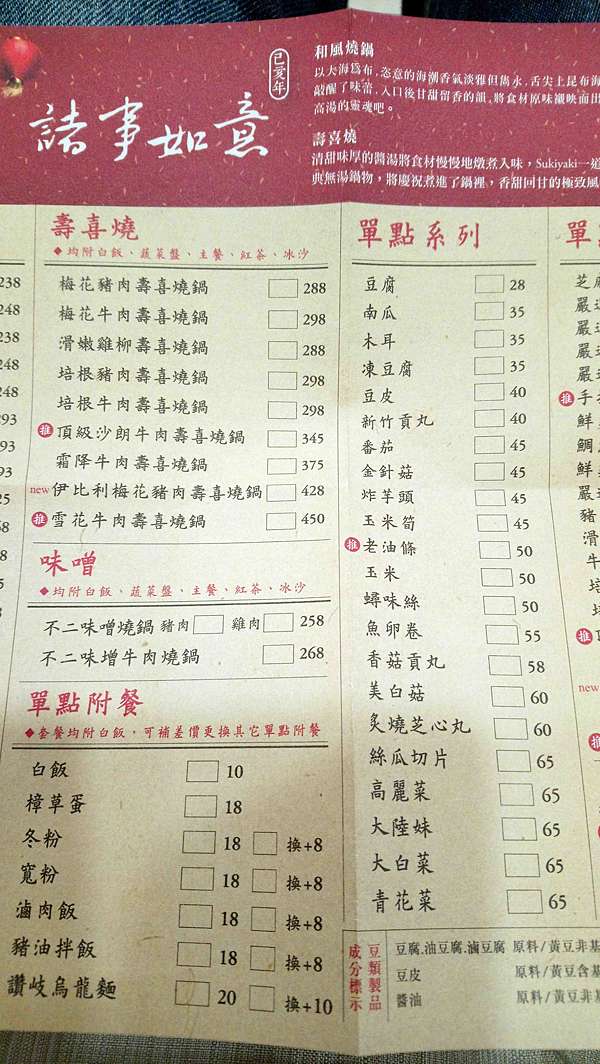 諸事如意
己亥年
和風燒鍋
以大海為布,恣意的海潮香氣淡雅但雋永,舌尖上昆布海
敲醒了味蕾,入口後甘甜留香的韻,將食材原味襯映而出
高湯的靈魂吧。
壽喜燒
清甜味厚的醬湯將食材慢慢地燉煮入味,Sukiyaki一道
典無湯鍋物,將慶祝煮進了鍋裡,香甜回甘的極致風
238
248
238
248
293
293
壽喜燒
◆均附白飯、蔬菜盤、主餐、紅茶、冰沙
梅花豬肉壽喜燒鍋 288
梅花牛肉壽喜燒鍋 298
滑嫩雞柳壽喜燒鍋 288
培根豬肉壽喜燒鍋 298
培根牛肉壽喜燒鍋 298
推 頂級沙朗牛肉壽喜燒鍋 345
霜降牛肉壽喜燒鍋 375
new 伊比利梅花豬肉壽喜燒鍋 428
推 雪花牛肉壽喜燒鍋 450
味噌
◆均附白飯、蔬菜盤、主餐、紅茶、冰沙
不二味噌燒鍋 豬肉 雞肉 258
不二味增牛肉燒鍋 268
單點附餐
◆套餐均附白飯,可補差價更換其它單點附餐
白飯 10
樟草蛋 18
冬粉 18 換+8
寬粉 18 換+8
滷肉飯 18 換+8
豬油拌飯 18 換+8
讚岐烏龍麵 20 換+10
單點系列
豆腐 28
南瓜 35
木耳 35
凍豆腐 35
豆皮 40
新竹貢丸 40
番茄 45
金針菇 45
炸芋頭 45
玉米筍 45
推 老油條 50
玉米 50
蟳味絲 50
魚卵卷 55
香菇貢丸 58
美白菇 60
炙燒芝心丸 60
絲瓜切片 65
高麗菜 65
大陸妹 65
大白菜 65
青花菜 65
豆類製品
成分標示
豆腐.油豆腐.滷豆腐 原料/黃豆非基
豆皮 原料/黃豆含基
醬油 原料/黃豆非基
單
芝
嚴
嚴
嚴
嚴
推 手
鮮
鯛
鮮
嚴
豬
滑
牛
培
培
推 頂
new
推